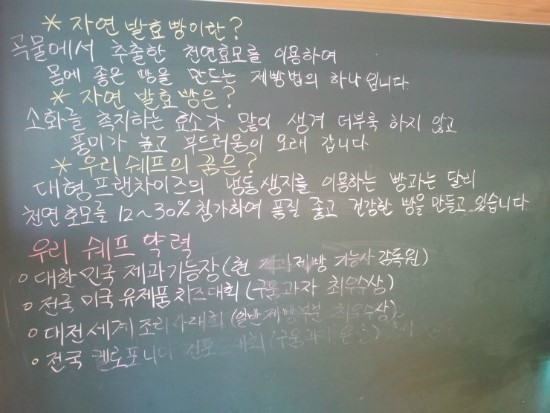 * 자연 발효빵이란?
곡물에서 추출한 천연효모를 이용하여
몸에 좋은 빵을 만드는 제빵법의 하나입니다
* 자연 발효빵은?
소화를 촉지하는 효소가 많이 생겨 더부룩 하지 않고
풍미가 높고 부드러움이 오래 갑니다
* 우리 쉐프의 꿈은?
대형프랜차이즈의 냉동생지를 이용하는 빵과는 달리
천연효모를 12~30% 첨가하여 품질 좋고 건강한 빵을 만들고 있습니다
우리 쉐프 약력
○ 대한민국 제과기능장 (현 제과제빵 기능사 감독원)
○ 전국 미국 유제품 치즈대회 (구움과자 최우수상)
○ 대전 세계 조리사대회 (일반제빵부분 최우수상)
○ 전국 대회 (구움과자